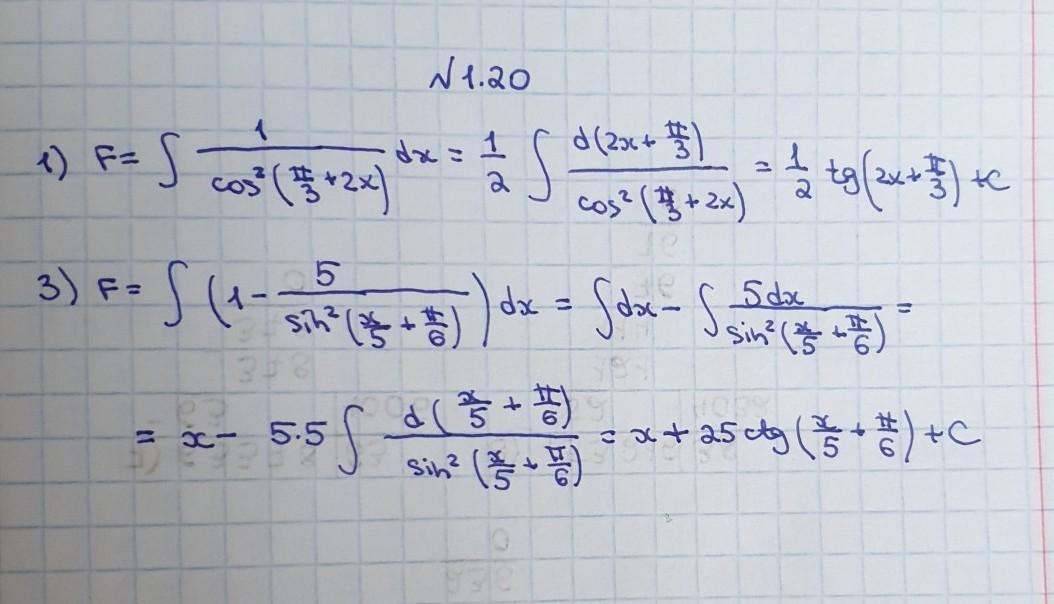 №1.20
1) F = ∫ 1/cos²(π/3 + 2x) dx = 1/2 ∫ d(2x + π/3)/cos²(π/3 + 2x) = 1/2 tg(2x + π/3) + C
3) F = ∫ (1 - 5/sin²(x/5 + π/6)) dx = ∫ dx - ∫ 5dx/sin²(x/5 + π/6) =
= x - 5·5 ∫ d(x/5 + π/6)/sin²(x/5 + π/6) = x + 25 ctg(x/5 + π/6) + C